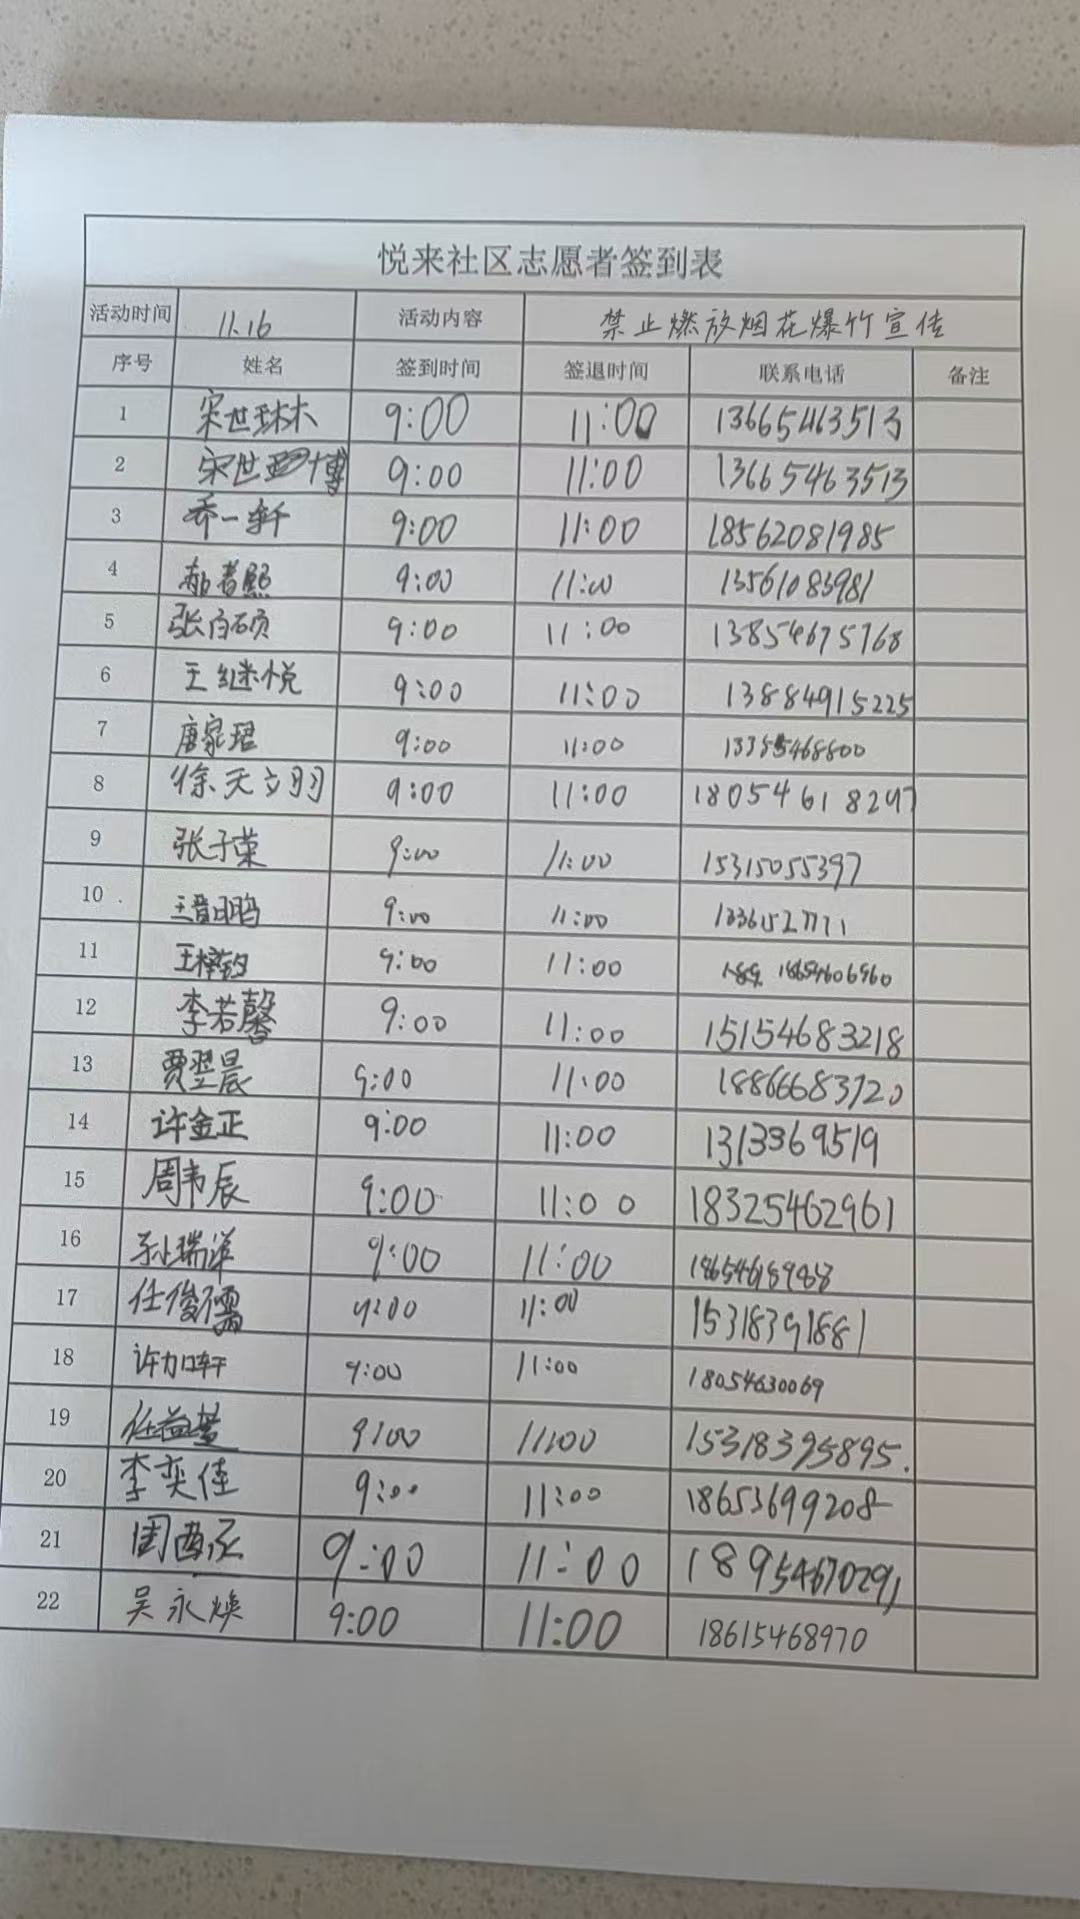 悦来社区志愿者签到表
活动时间 11.16 活动内容 禁止燃放烟花爆竹宣传
序号 姓名 签到时间 签退时间 联系电话 备注
1 宋世琳 9:00 11:00 13665463513
2 宋世博 9:00 11:00 13665463513
3 乔一轩 9:00 11:00 18562081985
4 9:00 11:00 13561083981
5 9:00 11:00 13854675768
6 王继悦 9:00 11:00 13884915225
7 唐家珺 9:00 11:00
8 徐天翊 9:00 11:00 18054618297
9 张子荣 9:00 11:00 15315055397
10 9:00 11:00
11 王梓钧 9:00 11:00 18654606960
12 李若馨 9:00 11:00 15154683218
13 贾翌晨 9:00 11:00 18866683720
14 许金正 9:00 11:00 1313369519
15 周韦辰 9:00 11:00 18325462961
16 孙瑞洋 9:00 11:00
17 任俊儒 9:00 11:00 15318391881
18 许加轩 9:00 11:00 18054630069
19 任益萱 9:00 11:00 15318395895.
20 李奕佳 9:00 11:00 18653699208
21 9:00 11:00 18954670291
22 吴永焕 9:00 11:00 18615468970